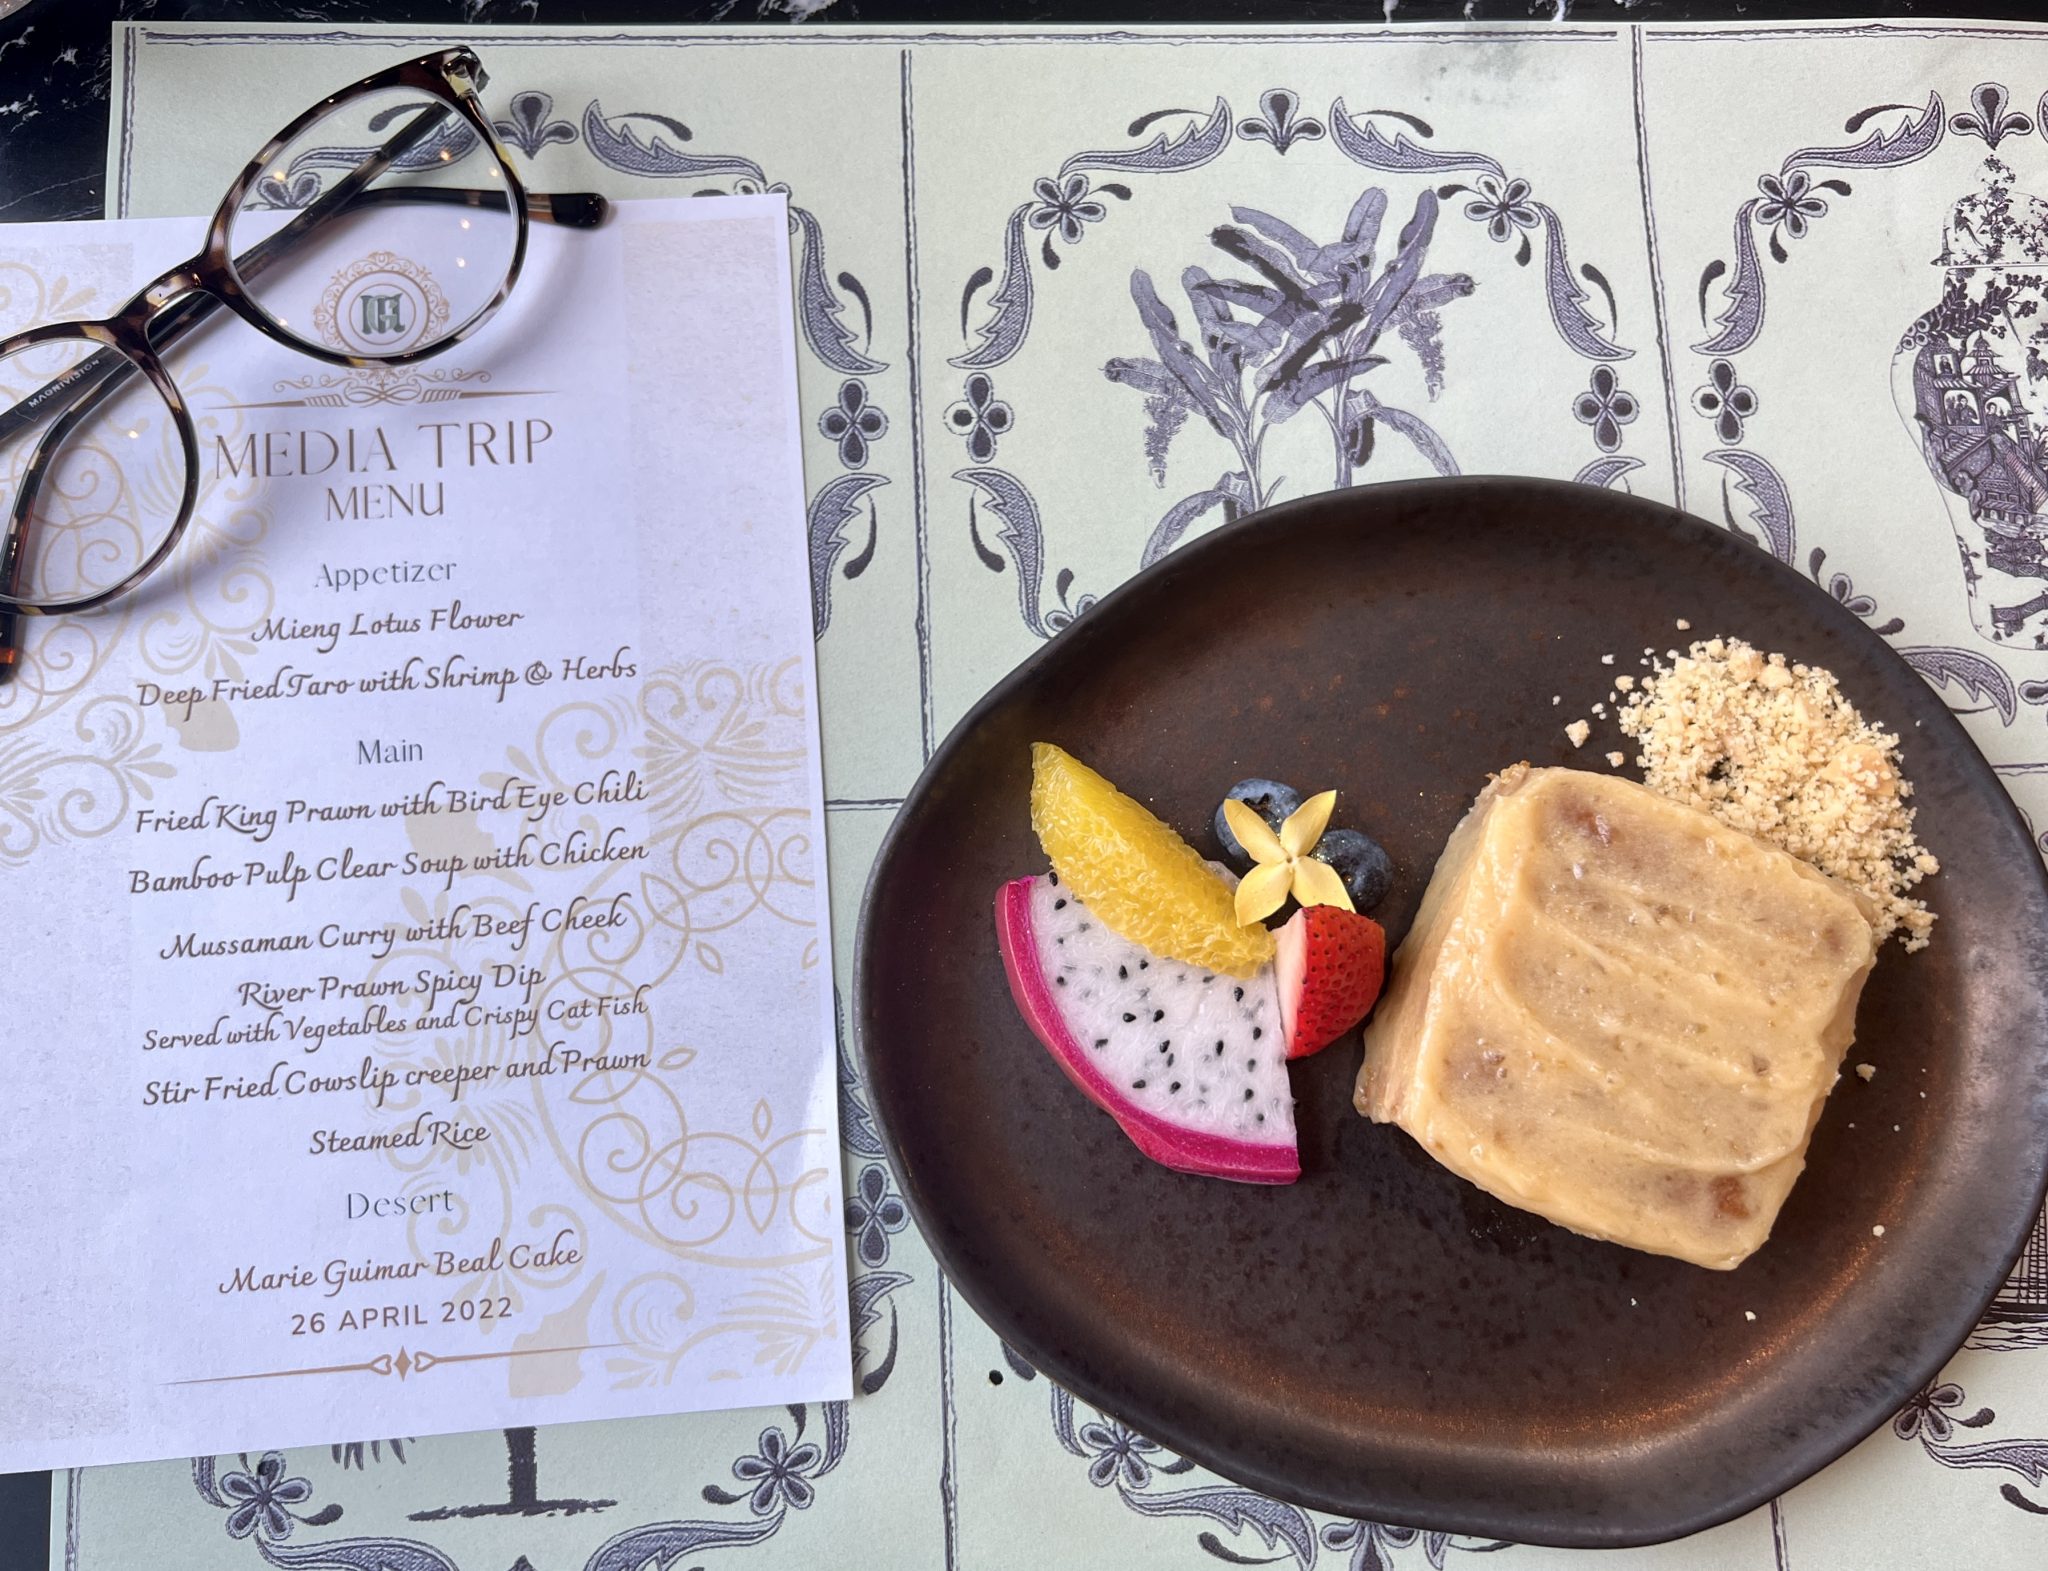 MAGNIVISION
MEDIA TRIP
MENU
Appetizer
Mieng Lotus Flower
Deep Fried Taro with Shrimp & Herbs
Main
Fried King Prawn with Bird Eye Chili
Bamboo Pulp Clear Soup with Chicken
Mussaman Curry with Beef Cheek
River Prawn Spicy Dip
Served with Vegetables and Crispy Cat Fish
Stir Fried Cowslip creeper and Prawn
Steamed Rice
Desert
Marie Guimar Beal Cake
26 APRIL 2022